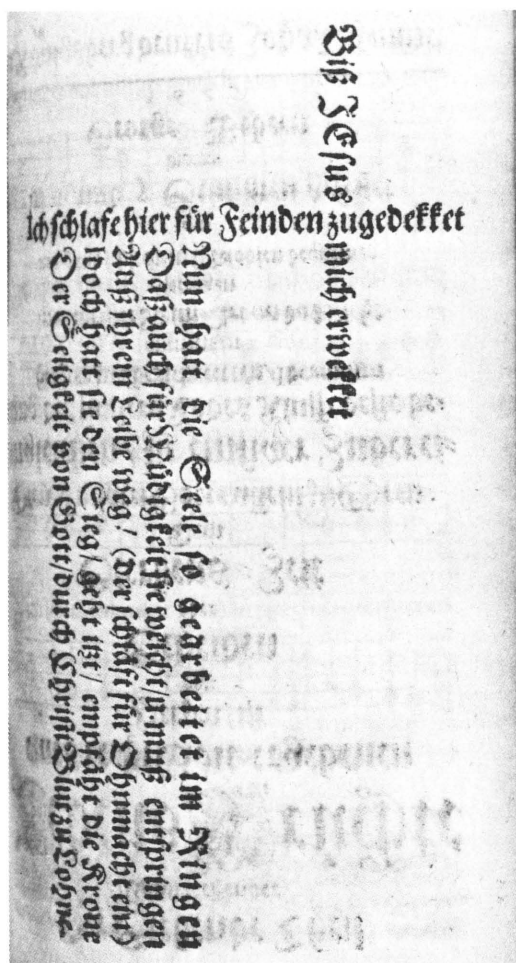 Ich schlafe hier für Feinden zugedekket
Biß JEsus mich erwekket
Nun hatt die Seele so gearbeitet im Ringen
Daß auch für Müdigkeit sie weicht/ muß entspringen
Auß ihrem Leibe wêg/ (der schläft für Ohnmacht ein)
Doch hatt sie den Sieg/ geht izt/ empfäht die Krone
Der Seligkeit von Gott/ durch Christi Blut zu Lohne.